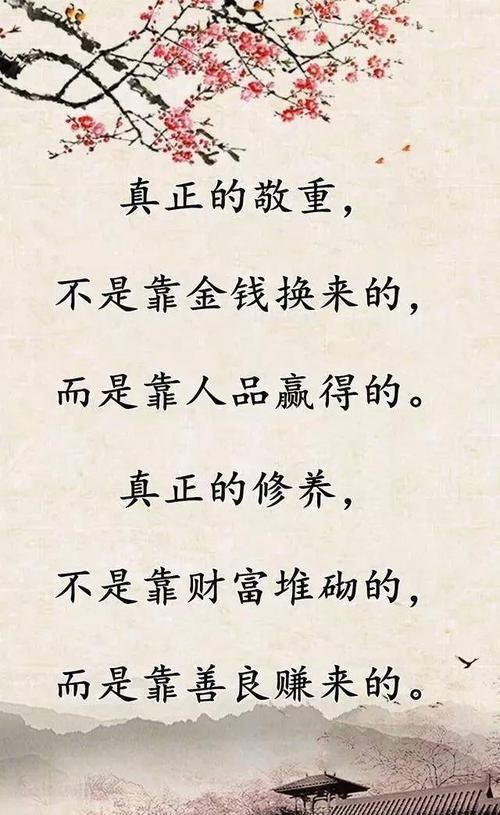 真正的敬重，
不是靠金钱换来的，
而是靠人品赢得的。
真正的修养，
不是靠财富堆砌的，
而是靠善良赚来的。